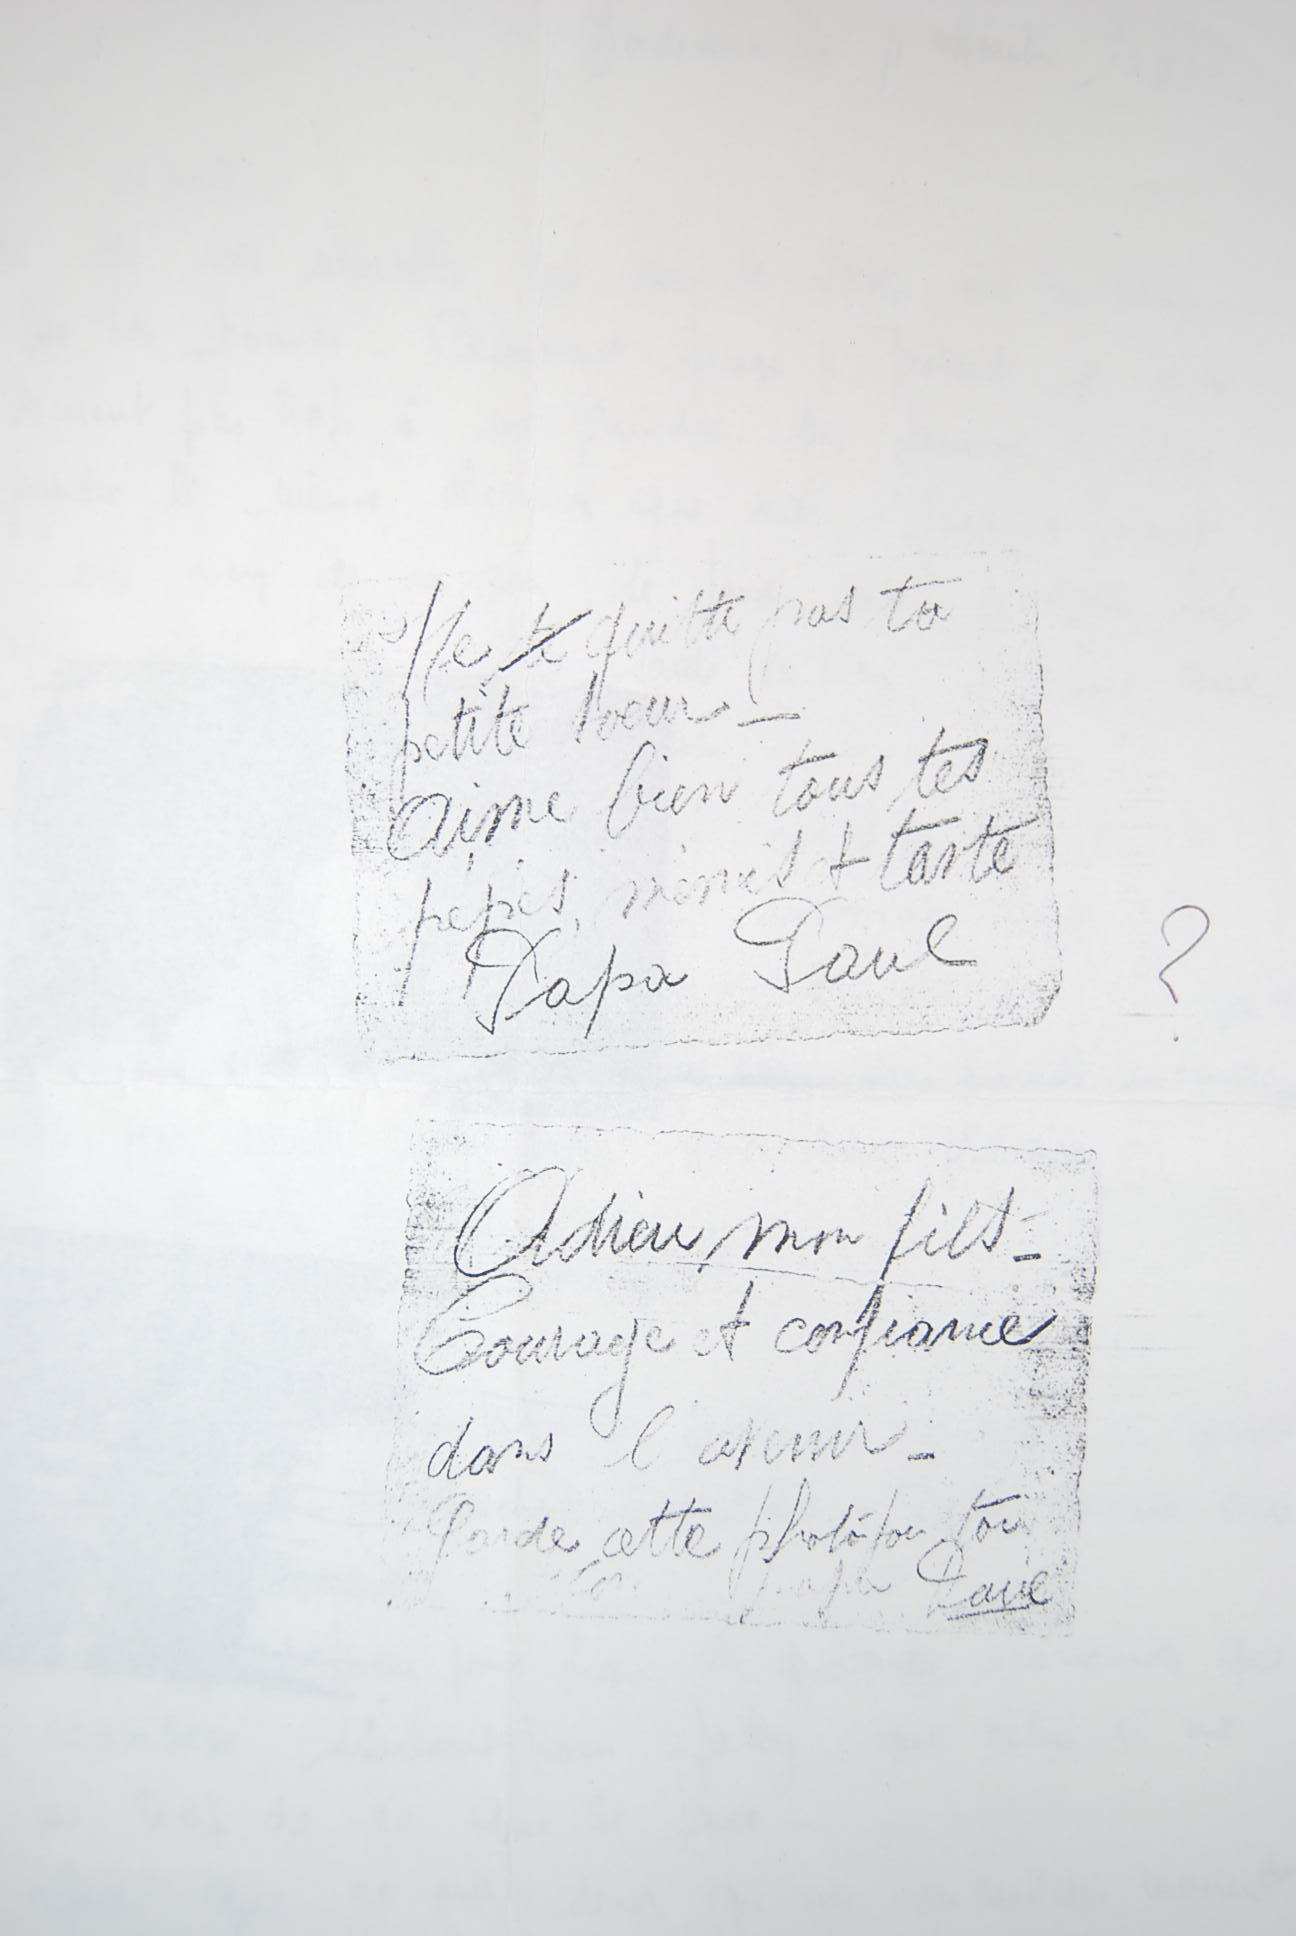 Ne te quitte pas ta
petite soeur. —
Aime bien tous tes
pépés, mémés & tante
Papa Paul
?
Adieu, mon fils –
Courage et confiance
dans l'avenir –
Garde cette photo pour toi
papa Paul